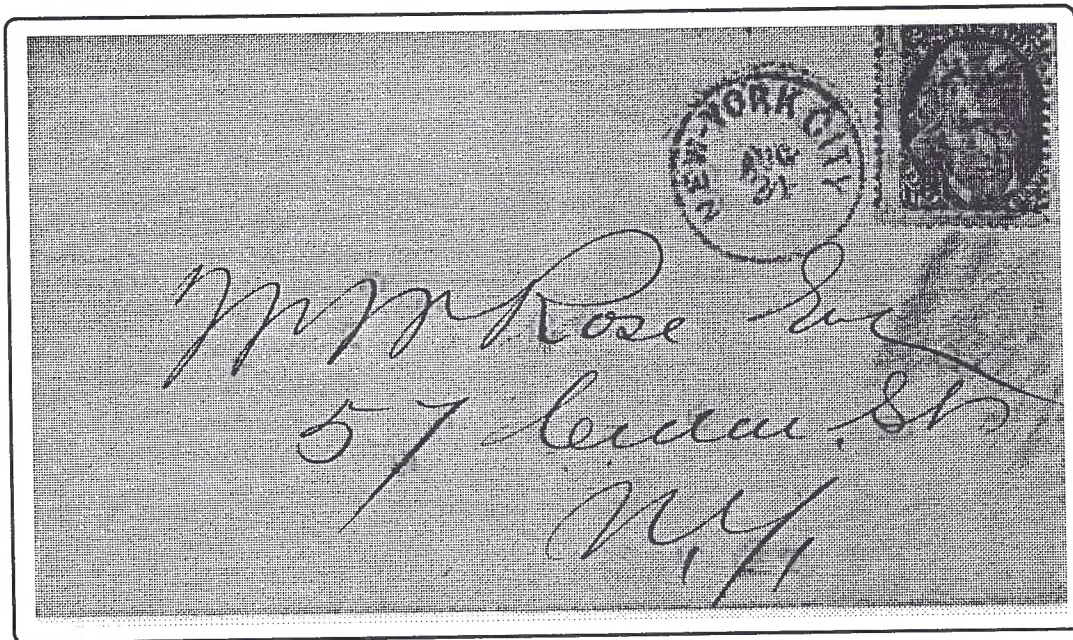 NEW-YORK CITY
AUG
31
W W Rose Esq
57 Cedar. St
N.Y.